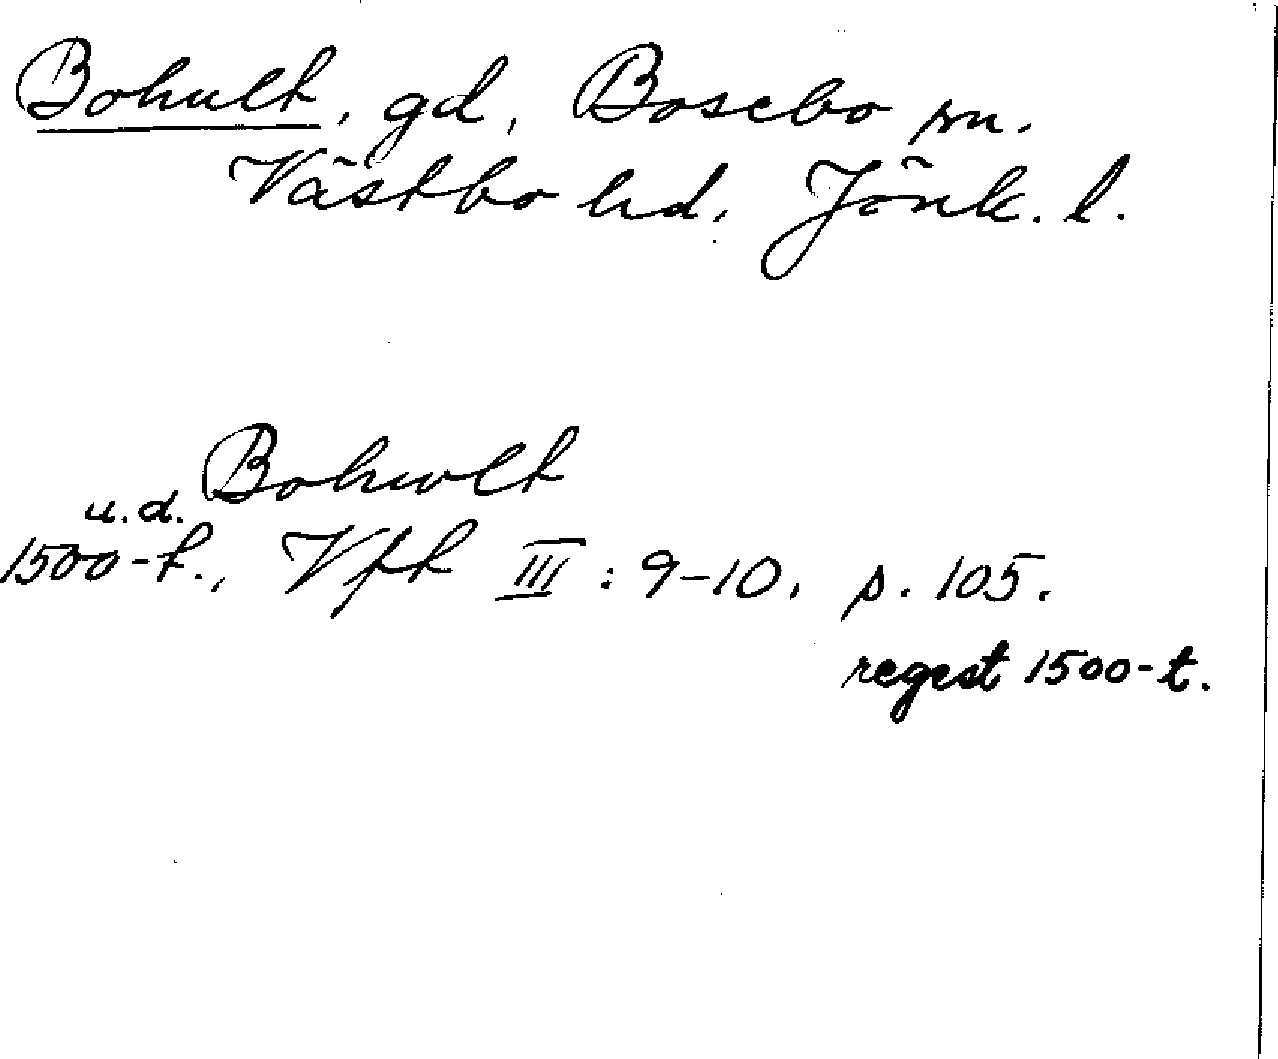 Bohult, gd, Bosebo sn.
Västbo hd. Jönk. l.
Bohwlt
u.d.
1500-t., Vfh III : 9-10, p. 105.
regest 1500-t.